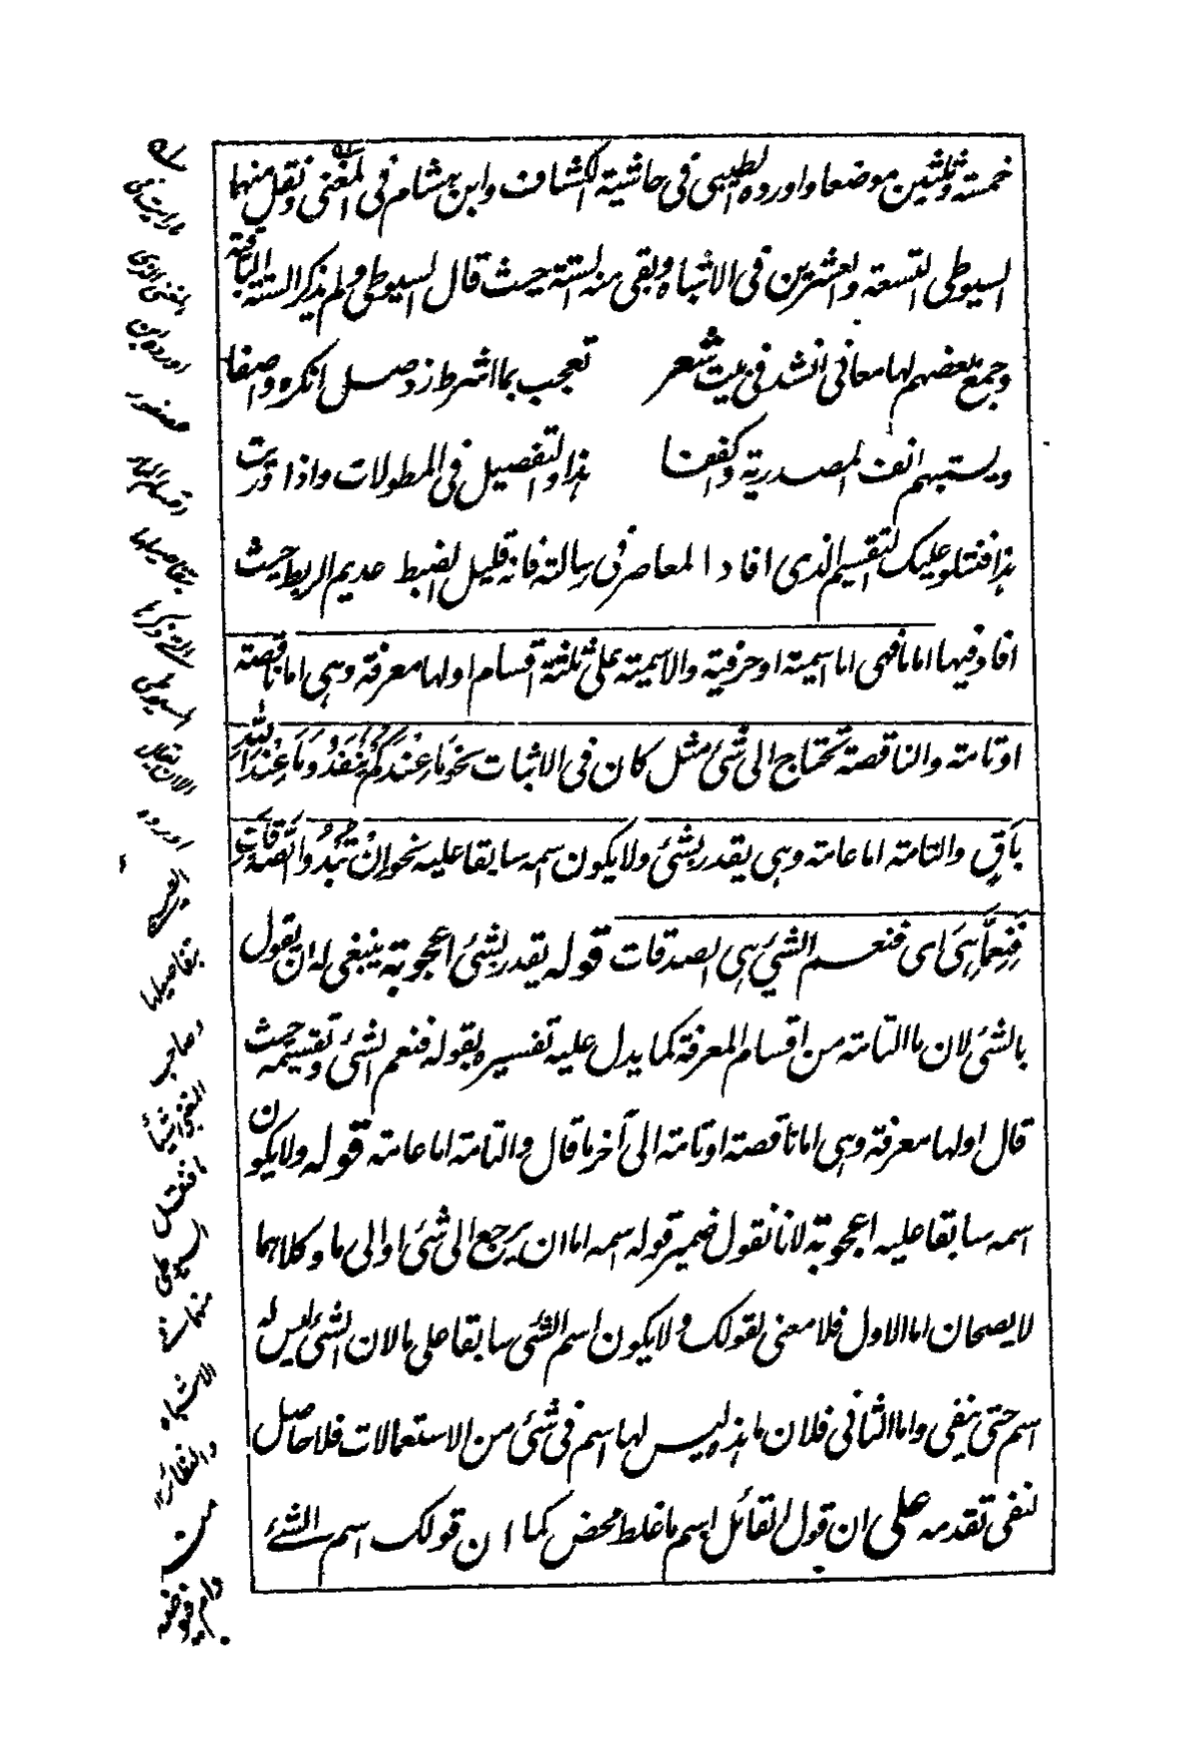 خمسة وثلثين موضعا واورده الطيبى فى حاشية الكشاف وابن هشام فى المغنى ونقل منها
السيوطى التسعة والعشرين فى الاشباه وبقى منه الستة حيث قال السيوطى ولم يذكر الستة الباقية
وجمع بعضهم لها معانى انشد فى بيت شعر تعجب بما اشرط زد صل انكره واصفا
ويستبهم انف المصدرية واكففا هذا والتفصيل فى المطولات واذا دريت
هذا فنتلو عليك التقسيم الذى افاد المعاصر فى رسالته فانه قليل الضبط عديم الربط حيث
افاد فيها اما ما فهى اما اسمية او حرفية والاسمية على ثلثة اقسام اولها معرفة وهى اما ناقصة
او تامة والناقصة تحتاج الى شئ مثل كان فى الاثبات نحو مَا عِنْدَكُمْ يَنْفَدُ وَمَا عِنْدَ اللهِ
بَاقٍ والتامة اما عامة وهى يقدر بشئ ولا يكون اسمه سابقا عليه نحو اِنْ تُبْدُوا الصَّدَقَاتِ
فَنِعِمَّا هِىَ اى فنعم الشئ هى الصدقات قوله يقدر بشئ اعجوبة ينبغى له ان يقول
بالشئ لان ما التامة من اقسام المعرفة كما يدل عليه تفسيره بقوله فنعم الشئ وتقسيمه حيث
قال اولها معرفة وهى اما ناقصة او تامة الى آخر ما قال والتامة اما عامة قوله ولا يكون
اسمه سابقا عليه اعجوبة لانا نقول ضمير قوله اسمه اما ان يرجع الى شئ او الى ما وكلاهما
لا يصحان اما الاول فلا معنى لقولك ولا يكون اسم الشئ سابقا على ما لان الشئ ليس له
اسم حتى ينفى واما الثانى فلان ما هذه ليس لها اسم فى شئ من الاستعمالات فلا حاصل
لنفى تقدمه على ان قول القائل اسم ما غلط محض كما ان قولك اسم الشئ
ما رايت فى
المغنى الذى
اورده ابن
بتفاصيلها
السيوطى
اورده
بتفاصيلها
الاشباه
والنظائر
من